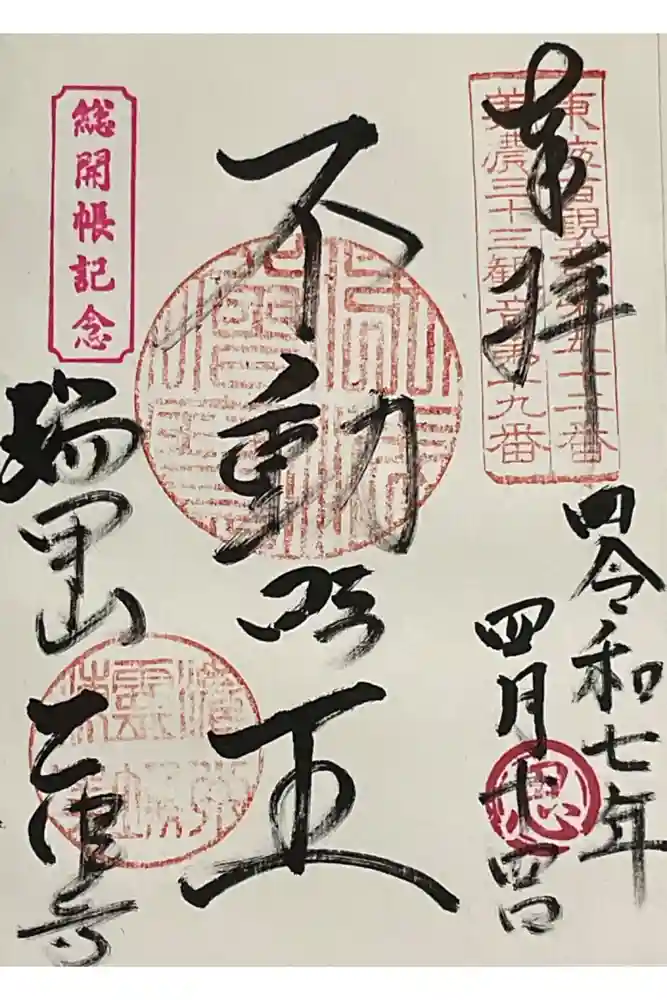 奉拝
東海百観音第五十二番
美濃三十三観音第十九番
四令和七年
四月十四日
不動明王
総開帳記念
瑞甲山
乙津寺